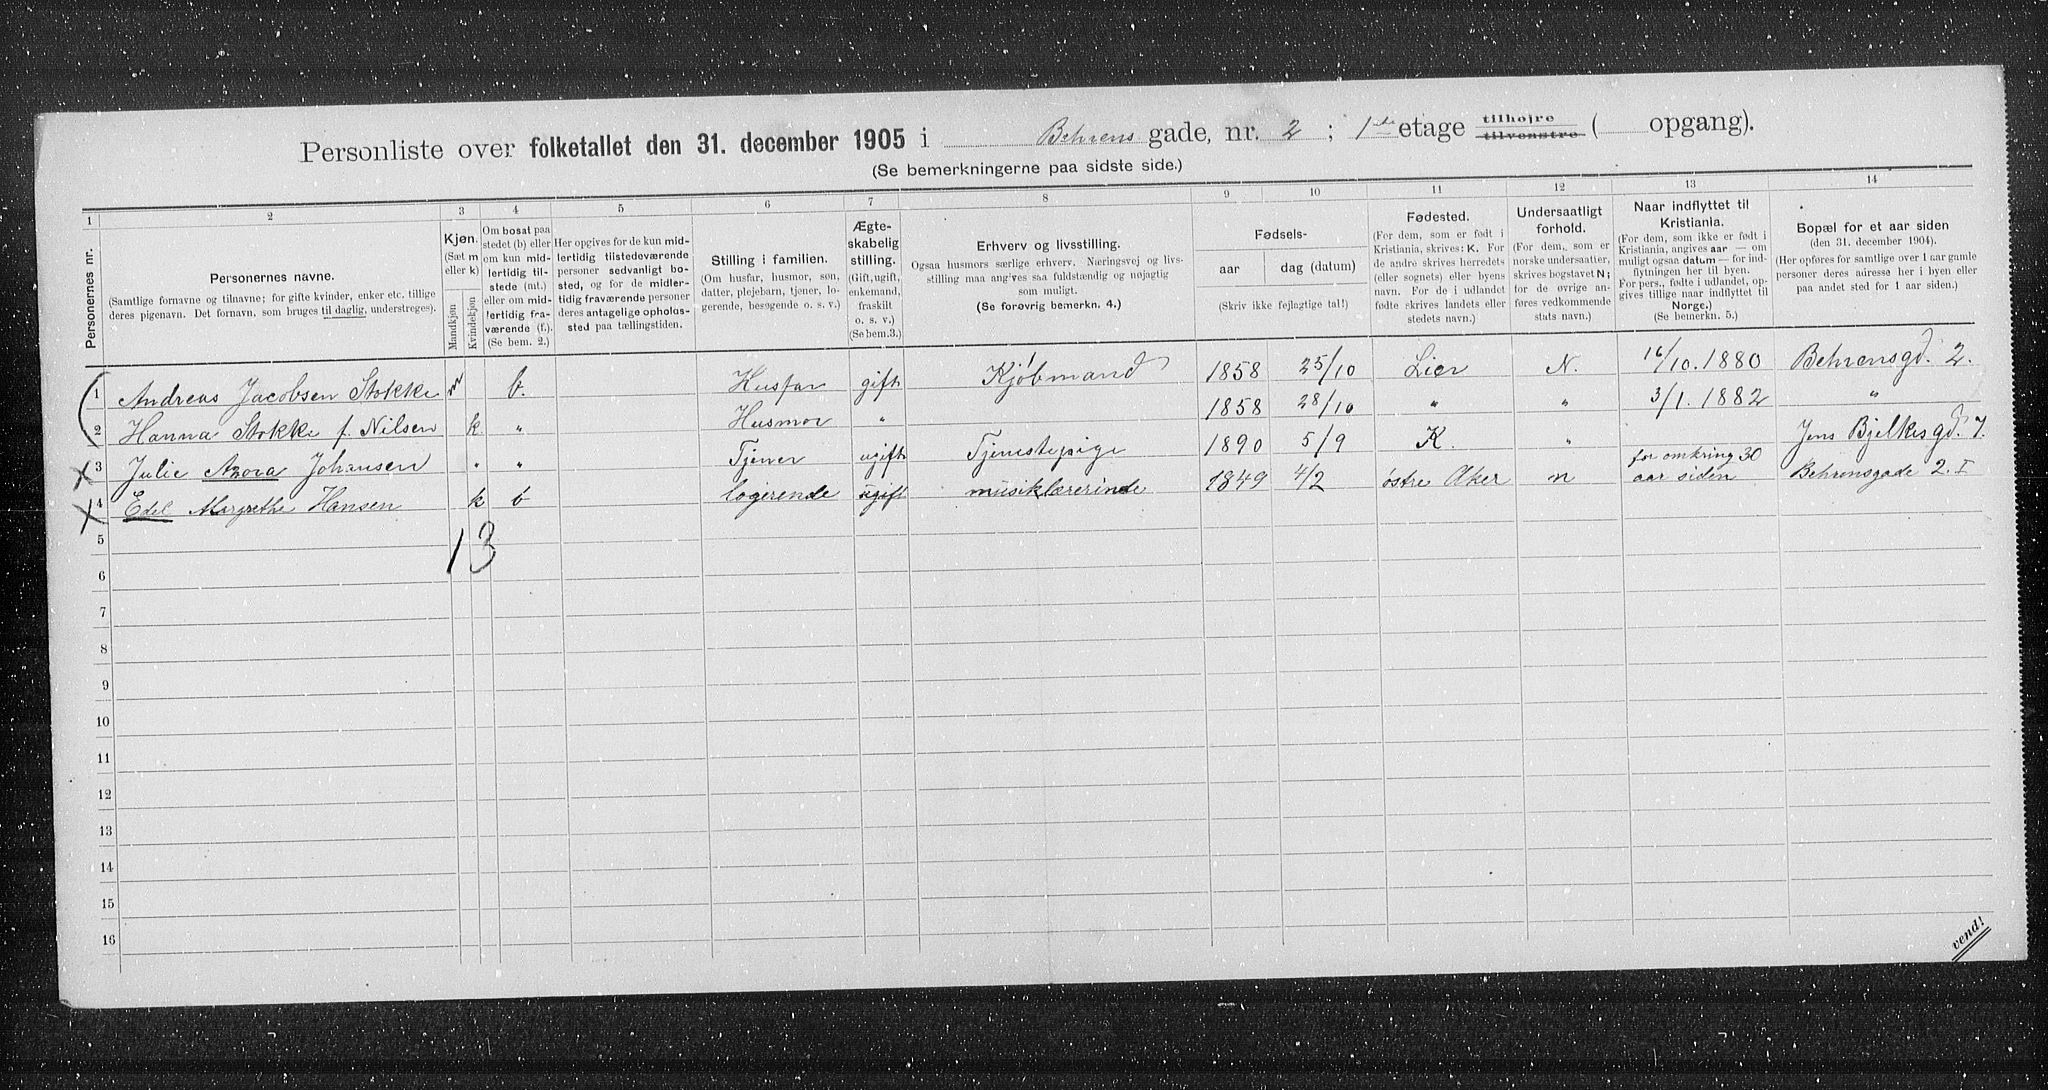 Personliste over folketallet den 31. december 1905 i Behrens gade, nr. 2 ; 1ste etage tilhøjre tilvenstre ( opgang).
(Se bemerkningerne paa sidste side.)
1 2 3 4 5 6 7 8 9 10 11 12 13 14
Personernes nr.
Personernes navne.
(Samtlige fornavne og tilnavne; for gifte kvinder, enker etc. tillige
deres pigenavn. Det fornavn, som bruges til daglig, understreges).
Kjøn.
(Sæt m
eller k)
Mandkjøn
Kvindekjøn
Om bosat paa
stedet (b) eller
om kun mid-
lertidig til-
stede (mt.)
eller om mid-
lertidig fra-
værende (f.).
(Se bem. 2.)
Her opgives for de kun mid-
lertidig tilstedeværende
personer sedvanligt bo-
sted, og for de midler-
tidig fraværende personer
deres antagelige opholds-
sted paa tællingstiden.
Stilling i familien.
(Om husfar, husmor, søn,
datter, plejebarn, tjener, lo-
gerende, besøgende o. s. v.)
Ægte-
skabelig
stilling.
(Gift, ugift,
enkemand,
fraskilt
o. s. v.)
(Se bem.3.)
Erhverv og livsstilling.
Ogsaa husmors særlige erhverv. Næringsvej og livs-
stilling maa angives saa fuldstændig og nøjagtig
som muligt.
(Se forøvrig bemerkn. 4.)
Fødsels-
aar
dag (datum)
(Skriv ikke fejlagtige tal!)
Fødested.
(For dem, som er født i
Kristiania, skrives: K. For
de andre skrives herredets
(eller sognets) eller byens
navn. For de i udlandet
fødte skrives landets eller
stedets navn.)
Undersaatligt
forhold.
(For dem, som er
norske undersaatter,
skrives bogstavet N;
for de øvrige an-
føres vedkommende
stats navn.)
Naar indflyttet til
Kristiania.
(For dem, som ikke er født i
Kristiania, angives aar — om
muligt ogsaa datum — for ind-
flytningen her til byen.
For pers., fødte i udlandet, op-
gives tillige naar indflyttet til
Norge.)
(Se bemerkn. 5.)
Bopæl for et aar siden
(den 31. december 1904).
(Her opføres for samtlige over 1 aar gamle
personer deres adresse her i byen eller
paa andet sted for 1 aar siden.)
1 Andreas Jacobsen Stokke m b. Husfar gift Kjøbmand 1858 25/10 Lier N. 16/10. 1880 Behrensgd. 2.
2 Hanna Stokke f. Nilsen k " Husmor " 1858 28/10 " " 3/1. 1882 "
3 Julie Azora Johansen " " Tjener ugift Tjenestepige 1890 5/9 K. " Jens Bjelkes gd. 7.
4 Edel Margrethe Hansen k b logerende ugift musiklærerinde 1849 4/2 østre Aker n for omkring 30 aar siden Behrensgade 2. I
1 3
5
6
7
8
9
10
11
12
13
14
15
16
vend!